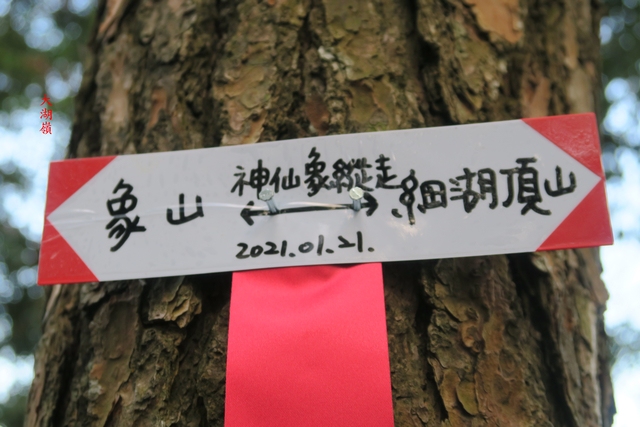 大湖嶺
神仙象縱走
象山 ↔ 細湖頂山
2021.01.21.